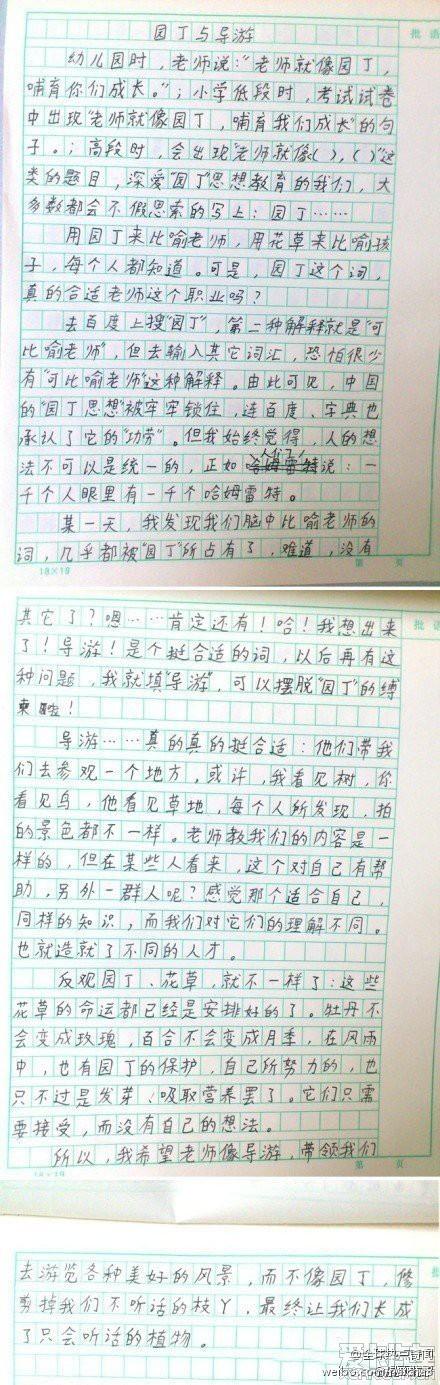 园丁与导游
幼儿园时，老师说：“老师就像园丁，
哺育你们成长。”；小学低段时，考试试卷
中出现“老师就像园丁，哺育我们成长”的句
子。；高段时，会出现“老师就像( )，( )”这
类的题目，深爱“园丁”思想教育的我们，大
多数都会不假思索的写上：园丁……
用园丁来比喻老师，用花草来比喻孩
子，每个人都知道。可是，园丁这个词，
真的合适老师这个职业吗？
去百度上搜“园丁”，第二种解释就是“可
比喻老师”，但去输入其它词汇，恐怕很少
有“可比喻老师”这种解释。由此可见，中国
的“园丁思想”被牢牢锁住，连百度、字典也
承认了它的“功劳”。但我始终觉得，人的想
法不可以是统一的，正如人们说：一
千个人眼里有一千个哈姆雷特。
某一天，我发现我们脑中比喻老师的
词，几乎都被“园丁”所占有了，难道，没有
18×19 第 页
批语
其它了？嗯……肯定还有！哈！我想出来
了！导游！是个挺合适的词，以后再有这
种问题，我就填“导游”，可以摆脱“园丁”的缚
束啦！
导游……真的真的挺合适：他们带我
们去参观一个地方，或许，我看见树，你
看见鸟，他看见草地，每个人所发现，拍
的景色都不一样。老师教我们的内容是一
样的，但在某些人看来，这个对自己有帮
助，另外一群人呢？感觉那个适合自己，
同样的知识，而我们对它们的理解不同。
也就造就了不同的人才。
反观园丁、花草，就不一样了：这些
花草的命运都已经是安排好的了。牡丹不
会变成玫瑰，百合不会变成月季，在风雨
中，也有园丁的保护，自己所努力的，也
只不过是发芽、吸取营养罢了。它们只需
要接受，而没有自己的想法。
所以，我希望老师像导游，带领我们
第 页
去游览各种美好的风景，而不像园丁，修
剪掉我们不听话的枝丫，最终让我们长成
了只会听话的植物。
@全球热点新闻
weibo.com